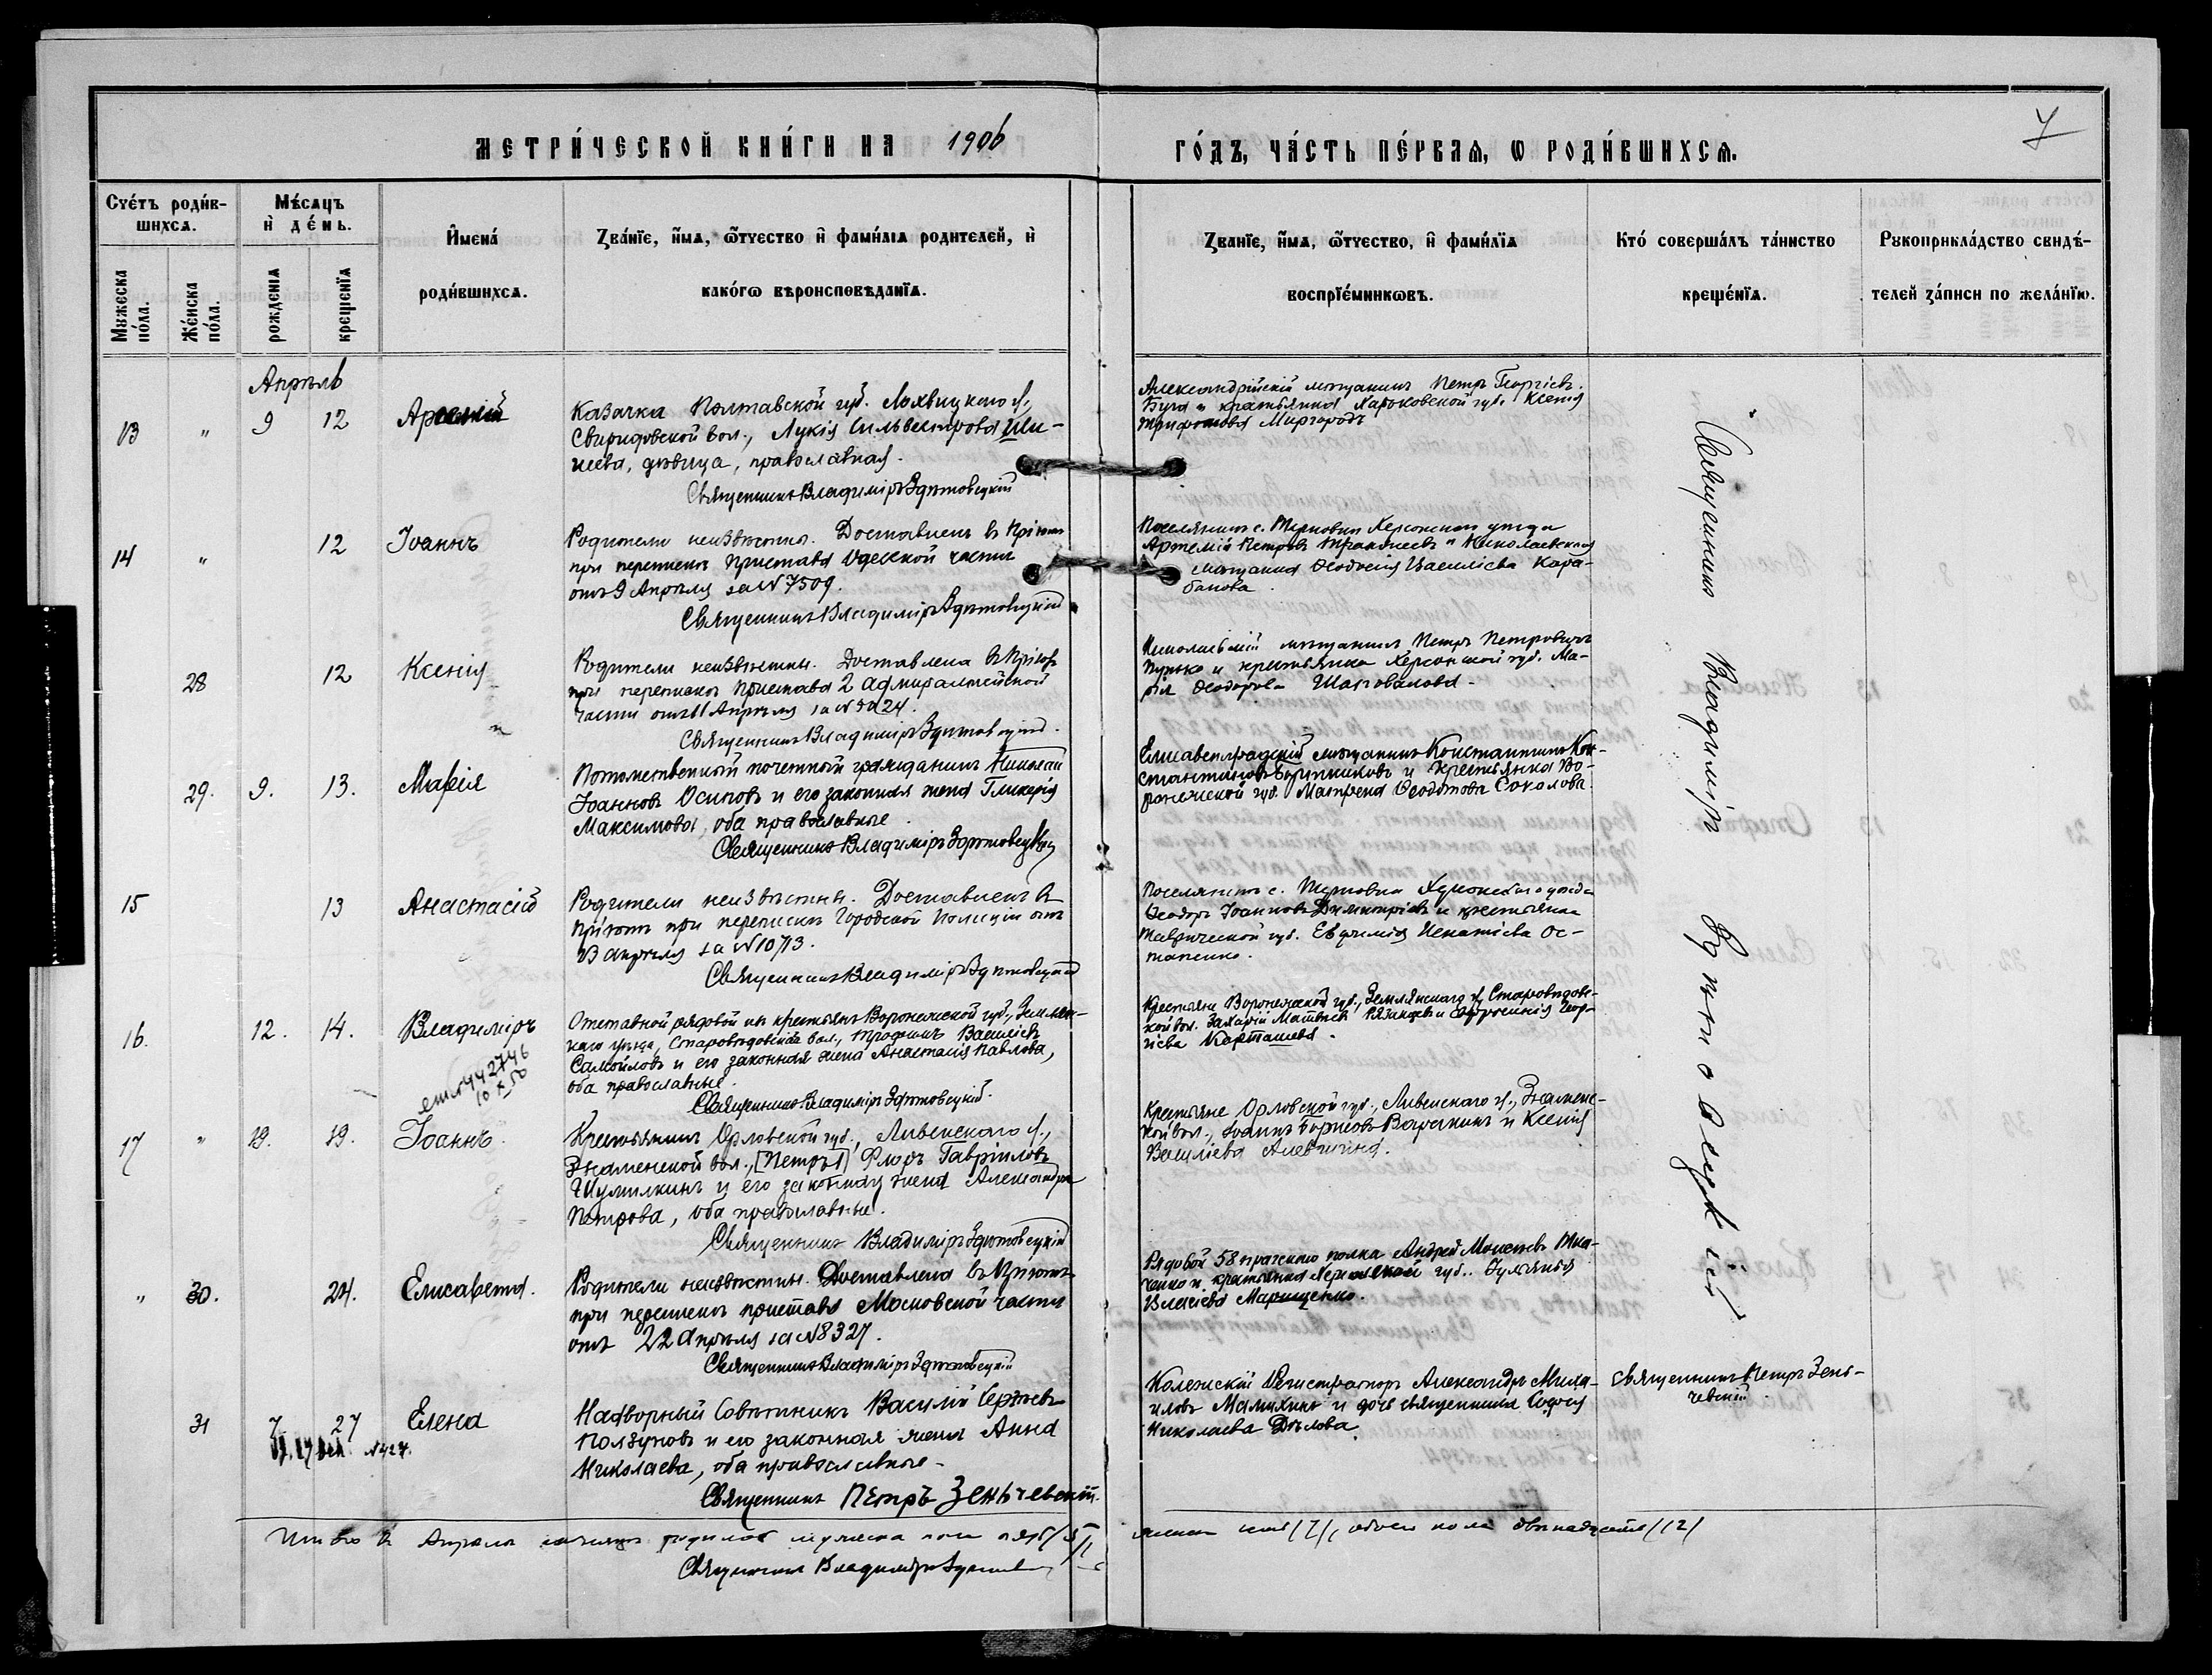 МЕТРИ́ЧЕСКОЙ КНИ́ГИ НА 1906
ГО́ДЪ, ЧА́СТЬ ПЕ́РВАѦ, Ѡ РОДИ́ВШИХСѦ.
7
Сче́тъ роди́в-
шихсѧ.
Мѣ́сѧцъ
и҆ де́нь.
И҆мена́
роди́вшихсѧ.
Зва́нїе, и҆́мѧ, ѻ҆́тчество и҆ фами́лїѧ родителей, и҆
како́гѡ вѣроисповѣданїѧ.
Зва́нїе, и҆́мѧ, ѻ҆́тчество, и҆ фами́лїѧ
воспрїе́мникѡвъ.
Кто́ соверша́лъ та́инство
креще́нїѧ.
Рꙋкоприкла́дство свидѣ́-
телей за́писи по жела́нїю.
Мꙋжеска
по́ла.
Же́нска
по́ла.
рожденїѧ
крещенїѧ
Апрѣль
13 " 9 12 Арсеній
Казачка Полтавской губ. Лохвицкаго у.,
Свиридовской вол., Лукія Сильвестрова Ши-
шева, дѣвица, православная.
Священникъ Владиміръ
Александрійскій мѣщанинъ Петръ Георгіевъ
Буга и крестьянка Харьковской губ. Ксенія
Трифонова Миргородъ
14 " 12 Іоаннъ
Родители неизвѣстны. Доставленъ въ Пріютъ
при перепискѣ Пристава Одесской части
отъ 9 Апрѣля за № 7509.
Священникъ Владиміръ
Поселянинъ с. Терновки Херсонскаго уѣзда
Артемій Петровъ и Николаевская
мѣщанка Ѳеодосія Василіева Кара-
банова.
28 12 Ксенія
Родители неизвѣстны. Доставлена въ Пріютъ
при перепискѣ Пристава 2 адмиралтейской
части отъ 11 Апрѣля за №
Священникъ Владиміръ
Николаевскій мѣщанинъ Петръ Петровичъ
и крестьянка Херсонской губ. Ма-
рія Ѳеодорова Шаповалова.
29. 9. 13. Марія
Потомственный почетный гражданинъ Николай
Іоанновъ Осиповъ и его законная жена Гликерія
Максимова, оба православные.
Священникъ Владиміръ
Елисаветградскій мѣщанинъ Константинъ Кон-
стантиновъ и крестьянка Во-
ронежской губ. Матрена Ѳеодотова Соколова.
15 13 Анастасій
Родители неизвѣстны. Доставленъ въ
Пріютъ при перепискѣ Городской Полиціи отъ
13 апрѣля за № 10713.
Священникъ Владиміръ
Поселянинъ с. Терновки Херсонскаго уѣзда
Ѳеодоръ Іоанновъ Димитріевъ и крестьянка
Таврической губ. Евфимія Игнатіева Ос-
тапенко.
16. 12. 14. Владиміръ
442746
10 X 50
Отставной рядовой изъ крестьянъ Воронежской губ., Землян-
скаго уѣзда, Старовѣдовской вол., Трофимъ Василіевъ
Самойловъ и его законная жена Анастасія Павлова,
оба православные.
Священникъ Владиміръ
Крестьяне Воронежской губ., Землянскаго у., Старовѣдовс-
кой вол. Захарій Матвѣевъ Рязанцевъ и Геор-
гіева Карташева.
17 " 19. 19. Іоаннъ.
Крестьянинъ Орловской губ., Ливенскаго у.,
Знаменской вол., [Петръ] Флоръ Гавріиловъ
Шумилкинъ и его законная жена Александра
Петрова, оба православные.
Священникъ Владиміръ
Крестьяне Орловской губ., Ливенскаго у., Знаменс-
кой вол., Іоаннъ Борисовъ и Ксенія
Василіева
" 30. 24. Елисавета.
Родители неизвѣстны. Доставлена въ Пріютъ
при перепискѣ пристава Московской части
отъ 22 Апрѣля за № 8327.
Священникъ Владиміръ
Рядовой 58 пражскаго полка Андрей Моисеевъ Тка-
ченко и крестьянка Херсонской губ. Гульянія
Власіева Марищенко.
31 7 27 Елена
№ 424.
Надворный Совѣтникъ Василій Сергѣевъ
Ползуновъ и его законная жена Анна
Николаева, оба православные.
Священникъ Петръ Зеньчевскій.
Колежскій Регистраторъ Александръ Миха-
иловъ Малихинъ и дочь священника Софія
Николаева Дѣлова.
Священникъ Петръ Зень-
чевскій
Священникъ Владиміръ
Итого въ Апрѣлѣ мѣсяцѣ родилось мужеска пола пять /5/,
женска семь /7/, обоего пола двѣнадцать /12/
Священникъ Владиміръ